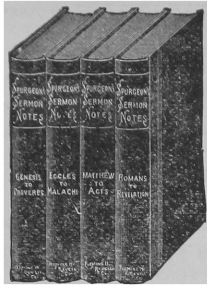 SPURGEON'S
SERMON
NOTES
GENESIS
TO
PROVERBS
SPURGEON'S
SERMON
NOTES
ECCLES
TO
MALACHI
SPURGEON'S
SERMON
NOTES
MATTHEW
TO
ACTS
SPURGEON'S
SERMON
NOTES
ROMANS
TO
REVELATION
FLEMING H.
REVELL